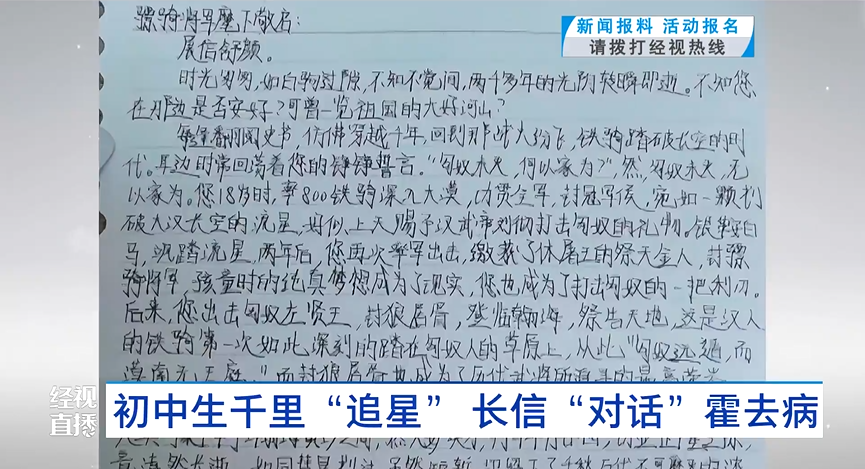 骠骑将军麾下敬启：
展信舒颜。
时光匆匆，如白驹过隙，不知不觉间，两千多年的光阴转瞬即逝。不知您
在那边是否安好？可曾一览祖国的大好河山？
每每翻阅史书，仿佛穿越千年，回到那战火纷飞，铁骑踏破长空的时
代。耳边时常回荡着您的铮铮誓言。“匈奴未灭，何以家为？”然，匈奴未灭，无
以家为。您18岁时，率800铁骑深入大漠，功贯全军，封冠军侯，宛如一颗划
破大汉长空的流星，好似上天赐予汉武帝刘彻打击匈奴的礼物。银鞍白
马，飒踏流星，两年后，您再次率军出击，缴获了休屠王的祭天金人，封骠
骑将军，孩童时的纯真梦想成为了现实，您也成为了打击匈奴的一把利刃。
后来，您出击匈奴左贤王，封狼居胥，登临翰海，祭告天地，这是汉人
的铁骑第一次如此深刻的踏在匈奴人的草原上，从此“匈奴远遁，而
漠南无王庭。”而封狼居胥也成为了历代武将所追寻的最高荣光
新闻报料 活动报名
请拨打经视热线
经视
直播
初中生千里“追星” 长信“对话”霍去病